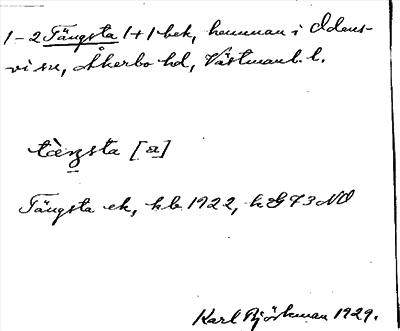 1-2 Tängsta 1+1 bek, hemman i Odens-
vi sn, Åkerbo hd, Västmanl. l.
tὲŋsta [a]
Tängsta ek, kb 1922, kG 73 NO
Karl Björkman 1929.